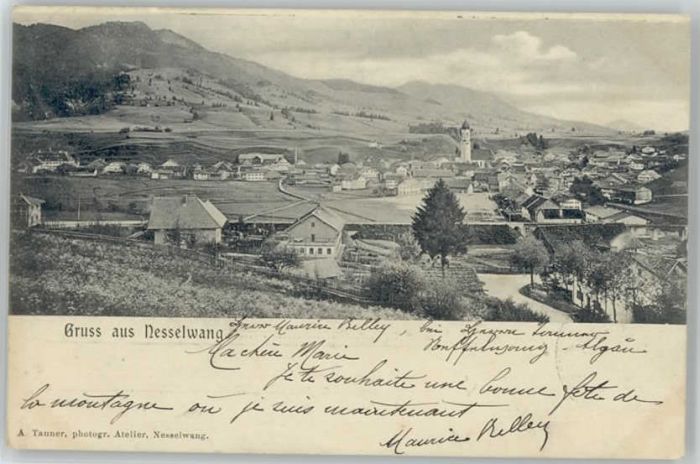 Gruss aus Nesselwang
Maurice Belley, bei
Algäu
Ma chère Marie
Je te souhaite une bonne fête de
la montagne où je suis maintenant
Maurice Belley
A. Tanner, photogr. Atelier, Nesselwang.